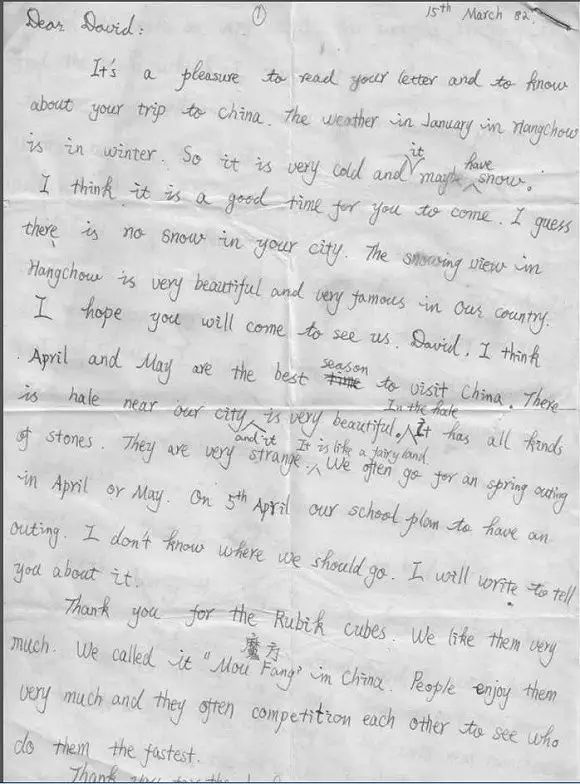 ①
15th March 82.
Dear David:
It's a pleasure to read your letter and to know
about your trip to China. The weather in January in Hangchow
is in winter. So it is very cold and it maybe have snow.
I think it is a good time for you to come. I guess
there is no snow in your city. The snowing view in
Hangchow is very beautiful and very famous in our country.
I hope you will come to see us. David, I think
April and May are the best season to visit China. There
is hale near our city and it is very beautiful. In the hale it has all kinds
of stones. They are very strange. It is like a fairy land. We often go for an spring outing
in April or May. On 5th April our school plan to have an
outing. I don't know where we should go. I will write to tell
you about it.
Thank you for the Rubik cubes. We like them very
much. We called it "Mou Fang" 魔方 in China. People enjoy them
very much and they often competition each other to see who
do them the fastest.
Thank you for the